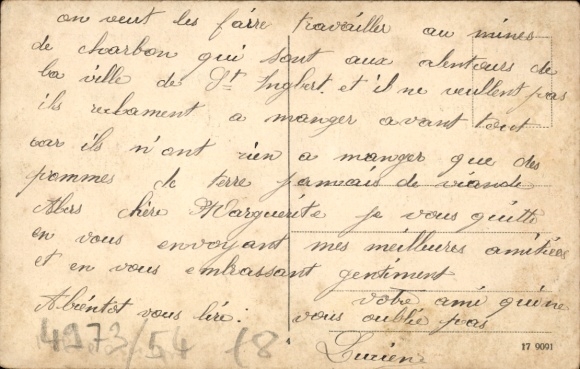 on veut les faire travailler au mines
de charbon qui sont aux alentours de
la ville de St Ingbert. et il ne veullent pas
ils reclament a manger avant tout
car ils n'ont rien a manger que des
pommes de terre jamais de viande
Alors chère Marguerite je vous quitte
en vous envoyant mes meilleures amitiées
et en vous embrassant gentiment
votre ami qui ne
A bientot vous lire. vous oublie pas
Lucien
4973/54 (8
17 9091